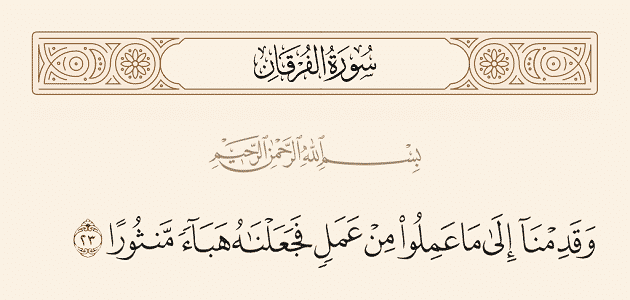 سُورَةُ الْفُرْقَانِ
بِسْمِ ٱللَّهِ ٱلرَّحْمَٰنِ ٱلرَّحِيمِ
وَقَدِمْنَآ إِلَىٰ مَا عَمِلُوا۟ مِنْ عَمَلٍ فَجَعَلْنَٰهُ هَبَآءً مَّنثُورًا ٢٣